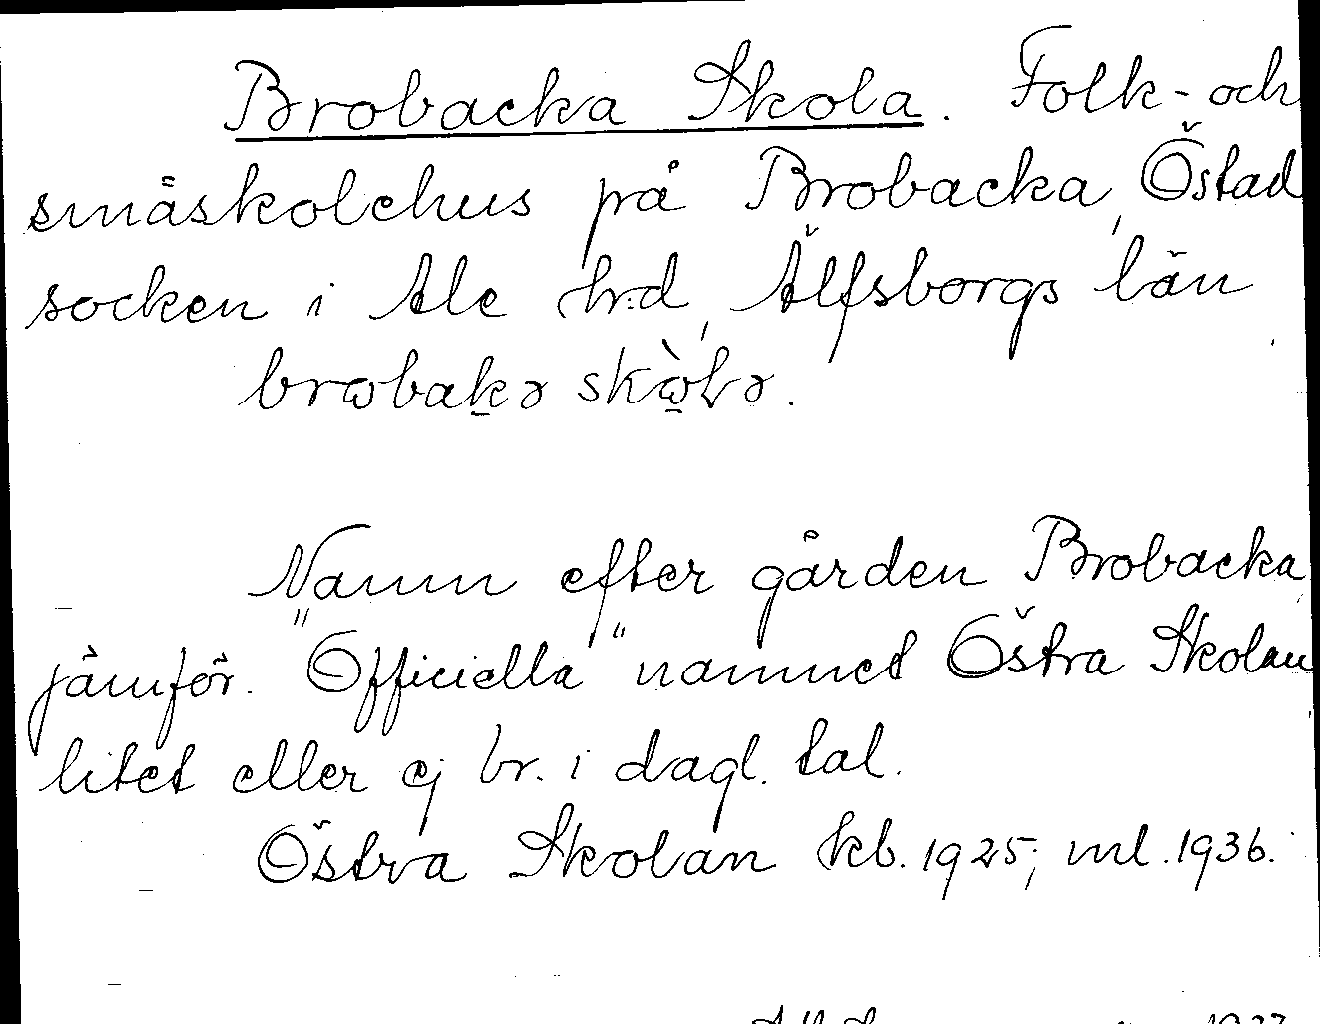 Brobacka Skola. Folk- och
småskolehus på Brobacka, Östad
socken i Ale hrd, Älfsborgs län
brωbakə skò̤lə.
Namn efter gården Brobacka,
jämför. "Officiella" namnet Östra Skolan
litet eller ej br. i dagl. tal.
Östra Skolan kb. 1925; ml. 1936.